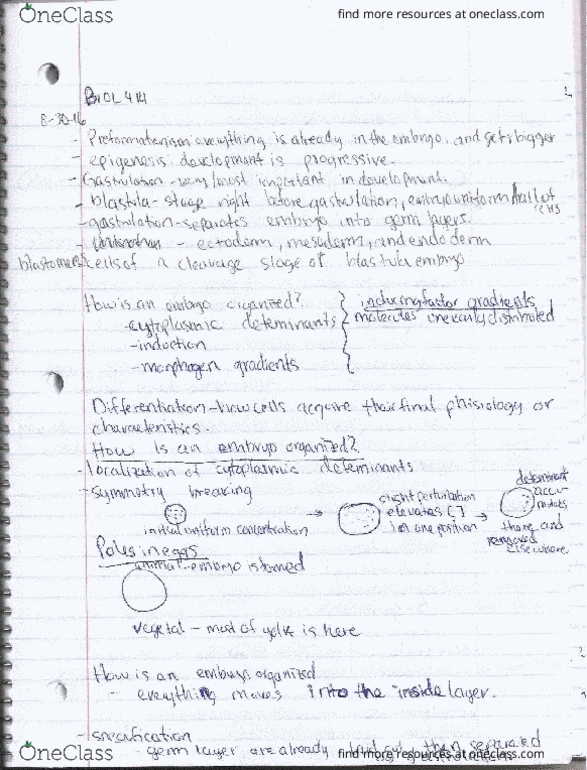 OneClass
find more resources at oneclass.com
BIOL 414
8-30-16
- Preformationism everything is already in the embryo, and gets bigger
- epigenesis: development is progressive.
- Gastrulation - very/most important in development.
- blastula - stage right before gastrulation, embryo uniform ball of cells
- gastrulation - separates embryo into germ layers.
- ectoderm, mesoderm, and endoderm
blastomeres cells of a cleavage stage of blastula embryo
How is an embryo organized? } inducing factor gradients
- cytoplasmic determinants molecules unevenly distributed
- induction
- morphogen gradients
Differentiation - how cells acquire their final phisiology or
characteristics.
How is an embryo organized?
- localization of cytoplasmic determinants
- symmetry breaking
initial uniform concentration
→
slight perturbation
elevates [ ]
in one position
→
determinant
accu-
mulates
there and
removed
elsewhere
Poles in eggs
animal - embryo is formed
vegetal - most of yolk is here
How is an embryo organized
- everything moves into the inside layer.
- specification
- germ layer are already then separated
OneClass
find more resources at oneclass.com